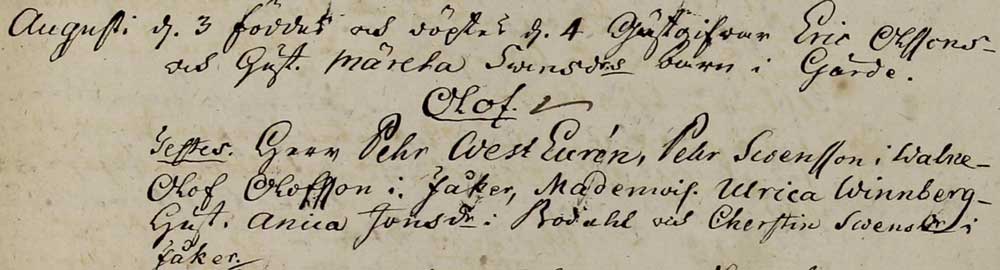 Augusti d. 3 föddes och döptes d. 4 Gästgifvar Eric Olssons
och Hust. Märeha Swensdrs barn i Gärde.
Olof.
Testes. Herr Pehr West Eurén, Pehr Swensson i Walne
Olof Olofsson i Faker, Mademois. Ulrica Winnberg
Hust. Anica Jonsdr i Rödahl och Cherstin Swensdr i
Faker.